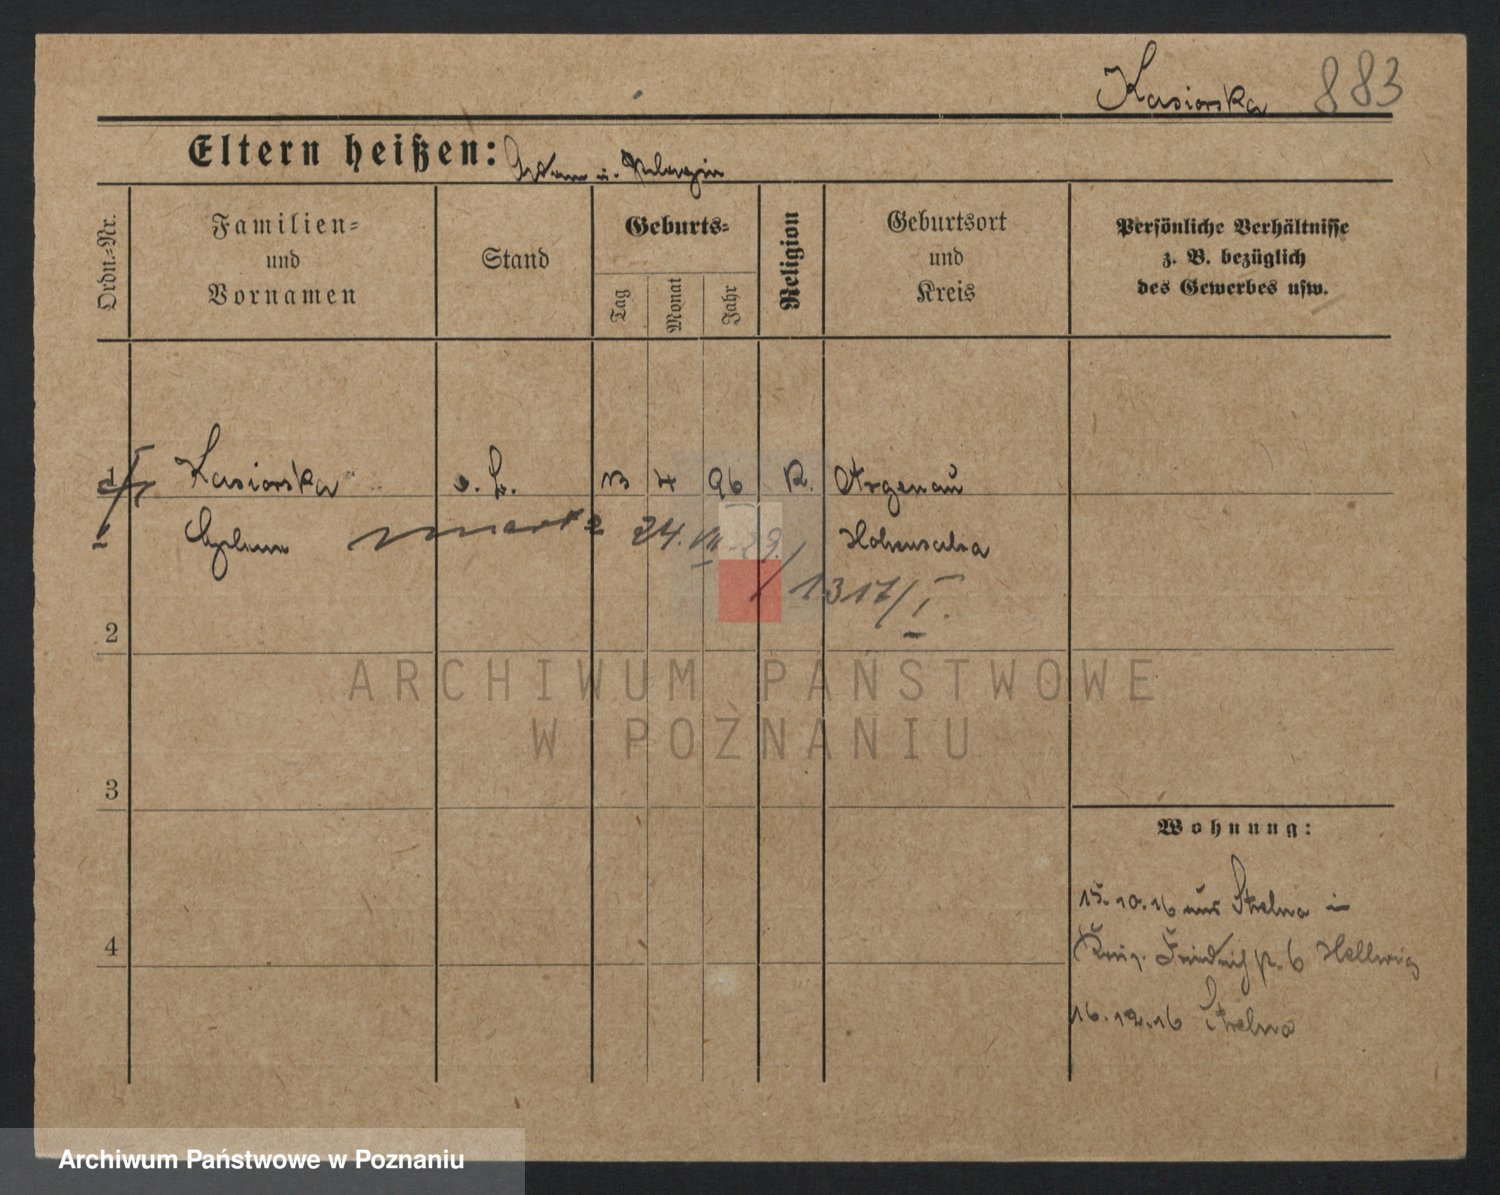 Kasiorska 883
Eltern heißen: Adam u. Pelagia
Ordn.-Nr.
Familien-
und
Vornamen
Stand
Geburts-
Tag
Monat
Jahr
Religion
Geburtsort
und
Kreis
Persönliche Verhältnisse
z. B. bezüglich
des Gewerbes usw.
1 Kasiorska o. B. 13 4 96 K. Argenau
24. VII. 29. Hohensalza
1317/I.
2
ARCHIWUM PAŃSTWOWE
W POZNANIU
3
Wohnung:
15.10.16 aus Strelno in
4
Friedrich 6 Hellwig
16.12.16 Strelno
Archiwum Państwowe w Poznaniu